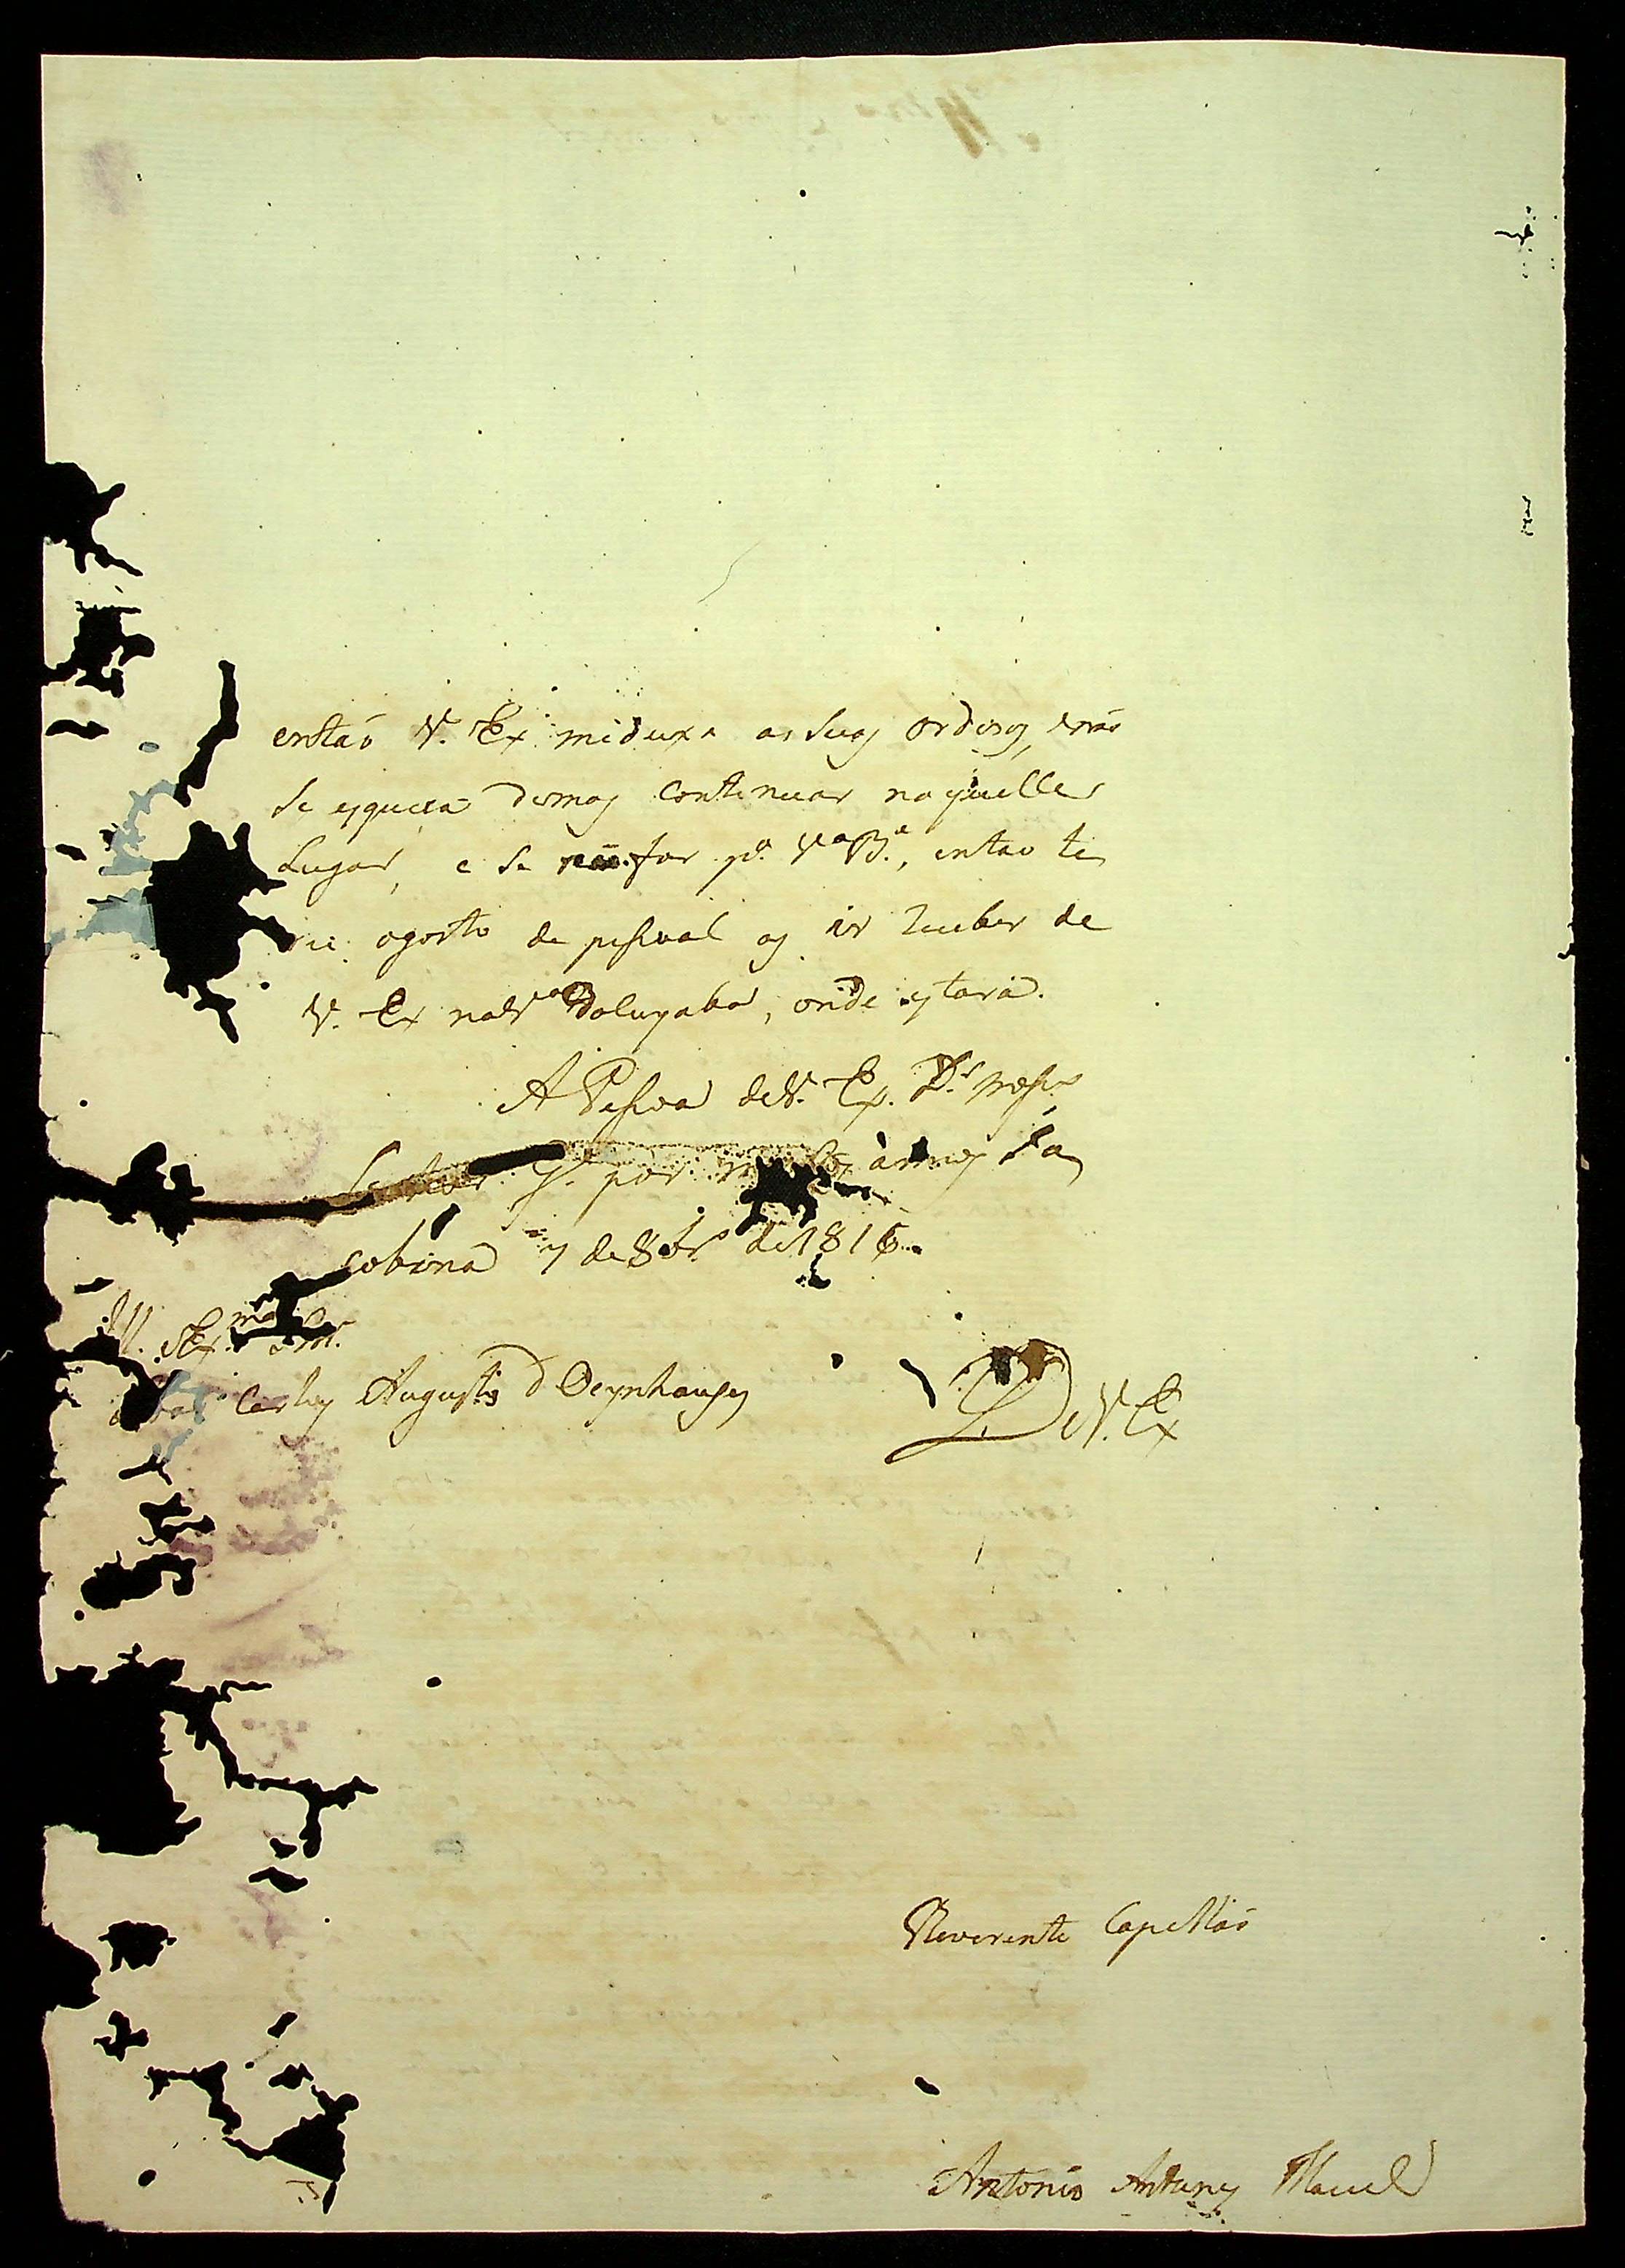 entaõ V. Ex. mi deixa as suas ordens, e não
se esqueca demos continuar naquelle
Lugar, e se não for pª Vª Bª, entao te
rei ogosto de pesoal as ir receber de
V. Ex na Vª Bª onde estará.
A Pesoa de V. Ex. Ds noso
Senhor Ge por muitos annos Ja
cobina 7 de 8br.º de 1816.
Ill. Ex.mo Snr.
Carlos Augusto d Oeynhausen
De V. Ex
Reverente Capellaõ
Antonio Antunes Maciel